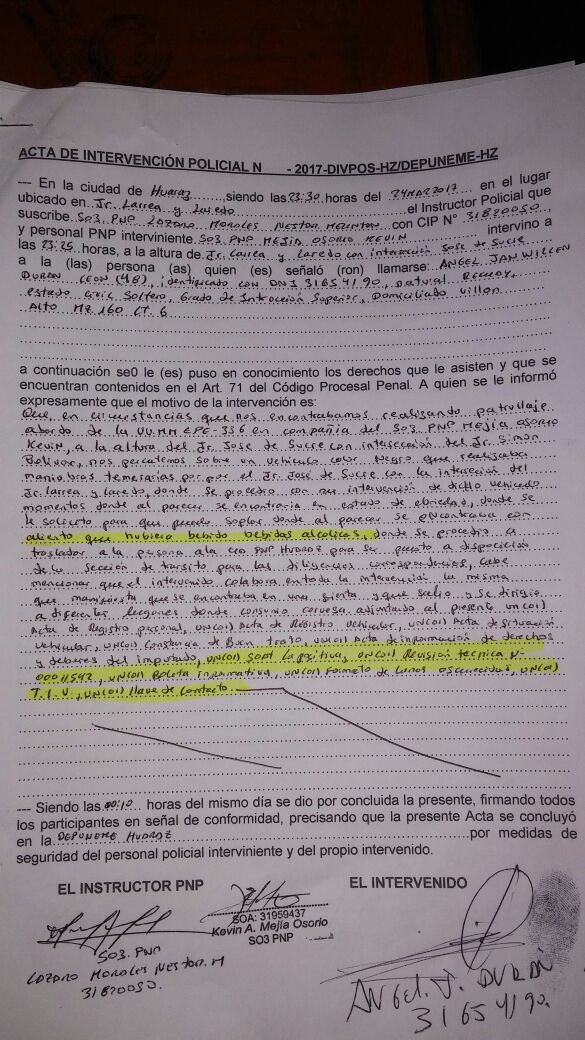 ACTA DE INTERVENCIÓN POLICIAL N - 2017-DIVPOS-HZ/DEPUNEME-HZ
--- En la ciudad de Huaraz, siendo las 23:30 horas del 24MAR2017 en el lugar
ubicado en Jr. Larrea y Loredo el Instructor Policial que
suscribe SO3. PNP LOZANO MORALES NESTOR MELINTON con CIP N° 31820050,
y personal PNP interviniente SO3 PNP MEJIA OSORIO KEVIN intervino a
las 23:25 horas, a la altura de Jr. Larrea y Laredo con intersección Jose de Sucre
a la (las) persona (as) quien (es) señaló (ron) llamarse: ANGEL JAN WILLEN
DURAN LEON (48), identificado con DNI 31654190, natural Recuay,
estado Civil Soltero, Grado de Instrucción Superior, Domiciliado Villon
Alto Mz 160 LT. 6
a continuación se0 le (es) puso en conocimiento los derechos que le asisten y que se
encuentran contenidos en el Art. 71 del Código Procesal Penal. A quien se le informó
expresamente que el motivo de la intervención es:
Que en circunstancias que nos encontrabamos realizando patrullaje
abordo de la UUMM EPE-336 en compañia del SO3 PNP Mejia OSORIO
Kevin, a la altura del Jr. Jose de Sucre con intersección del Jr. Simon
Bolivar, nos percatamos sobre un vehiculo color Negro que realizaba
maniobras temerarias por el Jr. José de Sucre con la intersección del
Jr. larrea y laredo, donde se procedio con su intervención de dicho vehiculo
momentos donde al parecer se encontraria en estado de ebriedad, donde se
le solicito para que pueda soplar donde al parecer se encontraba con
aliento que hubiera bebido bebidas alcolicas, donde se procedio a
trasladar a la persona a la PNP HUARAZ para ser puesto a disposición
de la Sección de transito para las diligencias correspondientes, Cabe
mencionar que el intervenido colabora en toda la intervención la misma
que manifiesta que se encontraba en una y que salio y se dirigio
a diferentes donde consumio cerveza adjuntando al presente un(01)
Acta de Registro personal, un(01) Acta de Registro vehicular, un(01) Acta de Situación
vehicular, un(01) Constancia de Buen trato, un(01) Acta de información de derechos
y deberes del imputado, un(01) SOAT La positiva, un(01) Revisión tecnica N-
00011542, un(01) Boleta informativa, un(01) Formato de Lunas oscurecidas, un(01)
T.I.V, un(01) llave de contacto.
--- Siendo las 00:10 horas del mismo día se dio por concluida la presente, firmando todos
los participantes en señal de conformidad, precisando que la presente Acta se concluyó
en la DEPUNEME HUARAZ por medidas de
seguridad del personal policial interviniente y del propio intervenido.
EL INSTRUCTOR PNP
EL INTERVENIDO
SOA: 31959437
Kevin A. Mejia Osorio
SO3 PNP
SO3. PNP
LOZANO MORALES NESTOR. M
31820050.
ANGEL. J. DURAN
31654190.